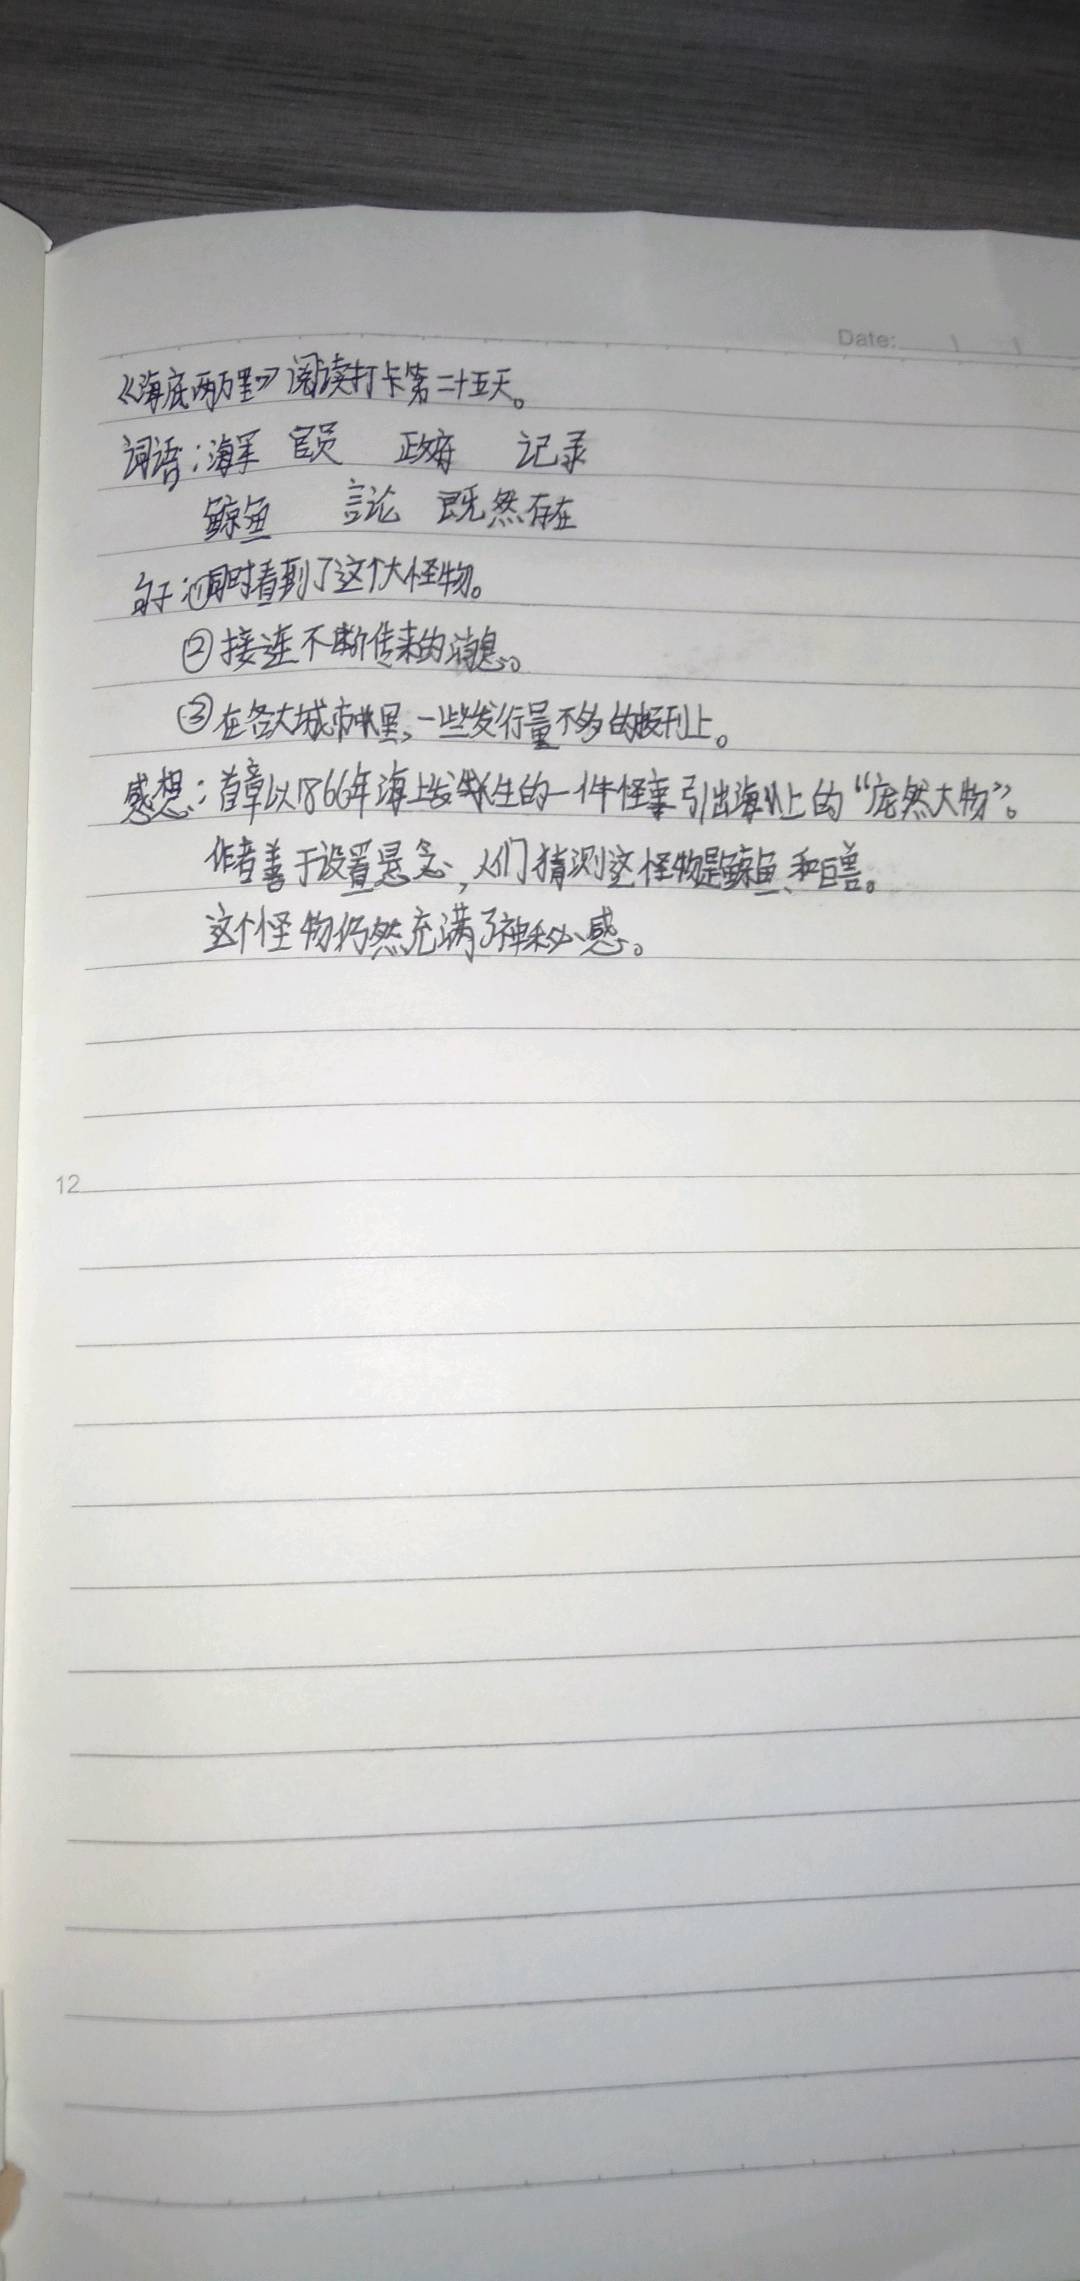 Date:
《海底两万里》阅读打卡第二十五天。
词语：海军 官员 政府 记录
鲸鱼 言论 既然存在
句子：①同时看到了这个大怪物。
②接连不断传来的消息。
③在各大城市里，一些发行量不多的报刊上。
感想：首章以1866年海上发生的一件怪事引出海上的“庞然大物”。
作者善于设置悬念，人们猜测这怪物是鲸鱼和巨兽。
这个怪物仍然充满了神秘感。
12